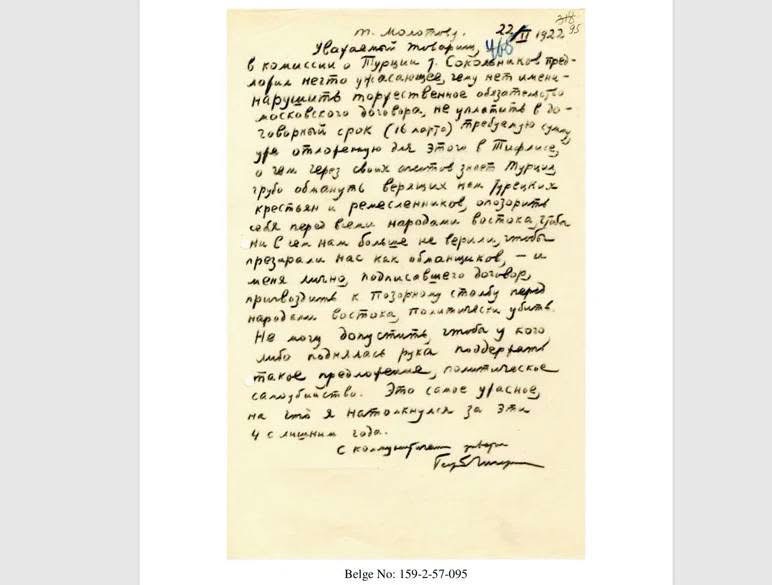 т. Молотову. 22/II 1922
95
Уважаемый товарищ,
в комиссии о Турции т. Сокольников пред-
ложил нечто ужасающее, чему нет имени-
нарушить торжественное обязательство
московского договора, не уплатить в до-
говорный срок (16 марта) требуемую сумму,
уже отложенную для этого в Тифлисе,
о чем через своих агентов знает Турция,
грубо обмануть верящих нам Турецких
крестьян и ремесленников, опозорить
себя перед всеми народами востока, чтобы
ни в чем нам больше не верили, чтобы
презирали нас как обманщиков, – и
меня лично, подписавшего договор,
пригвоздить к позорному столбу перед
народами востока, политически убить.
Не могу допустить, чтобы у кого
либо поднялась рука поддержать
такое предложение, политическое
самоубийство. Это самое ужасное,
на что я натолкнулся за эти
4 с лишним года.
С коммунистическим приветом
Belge No: 159-2-57-095